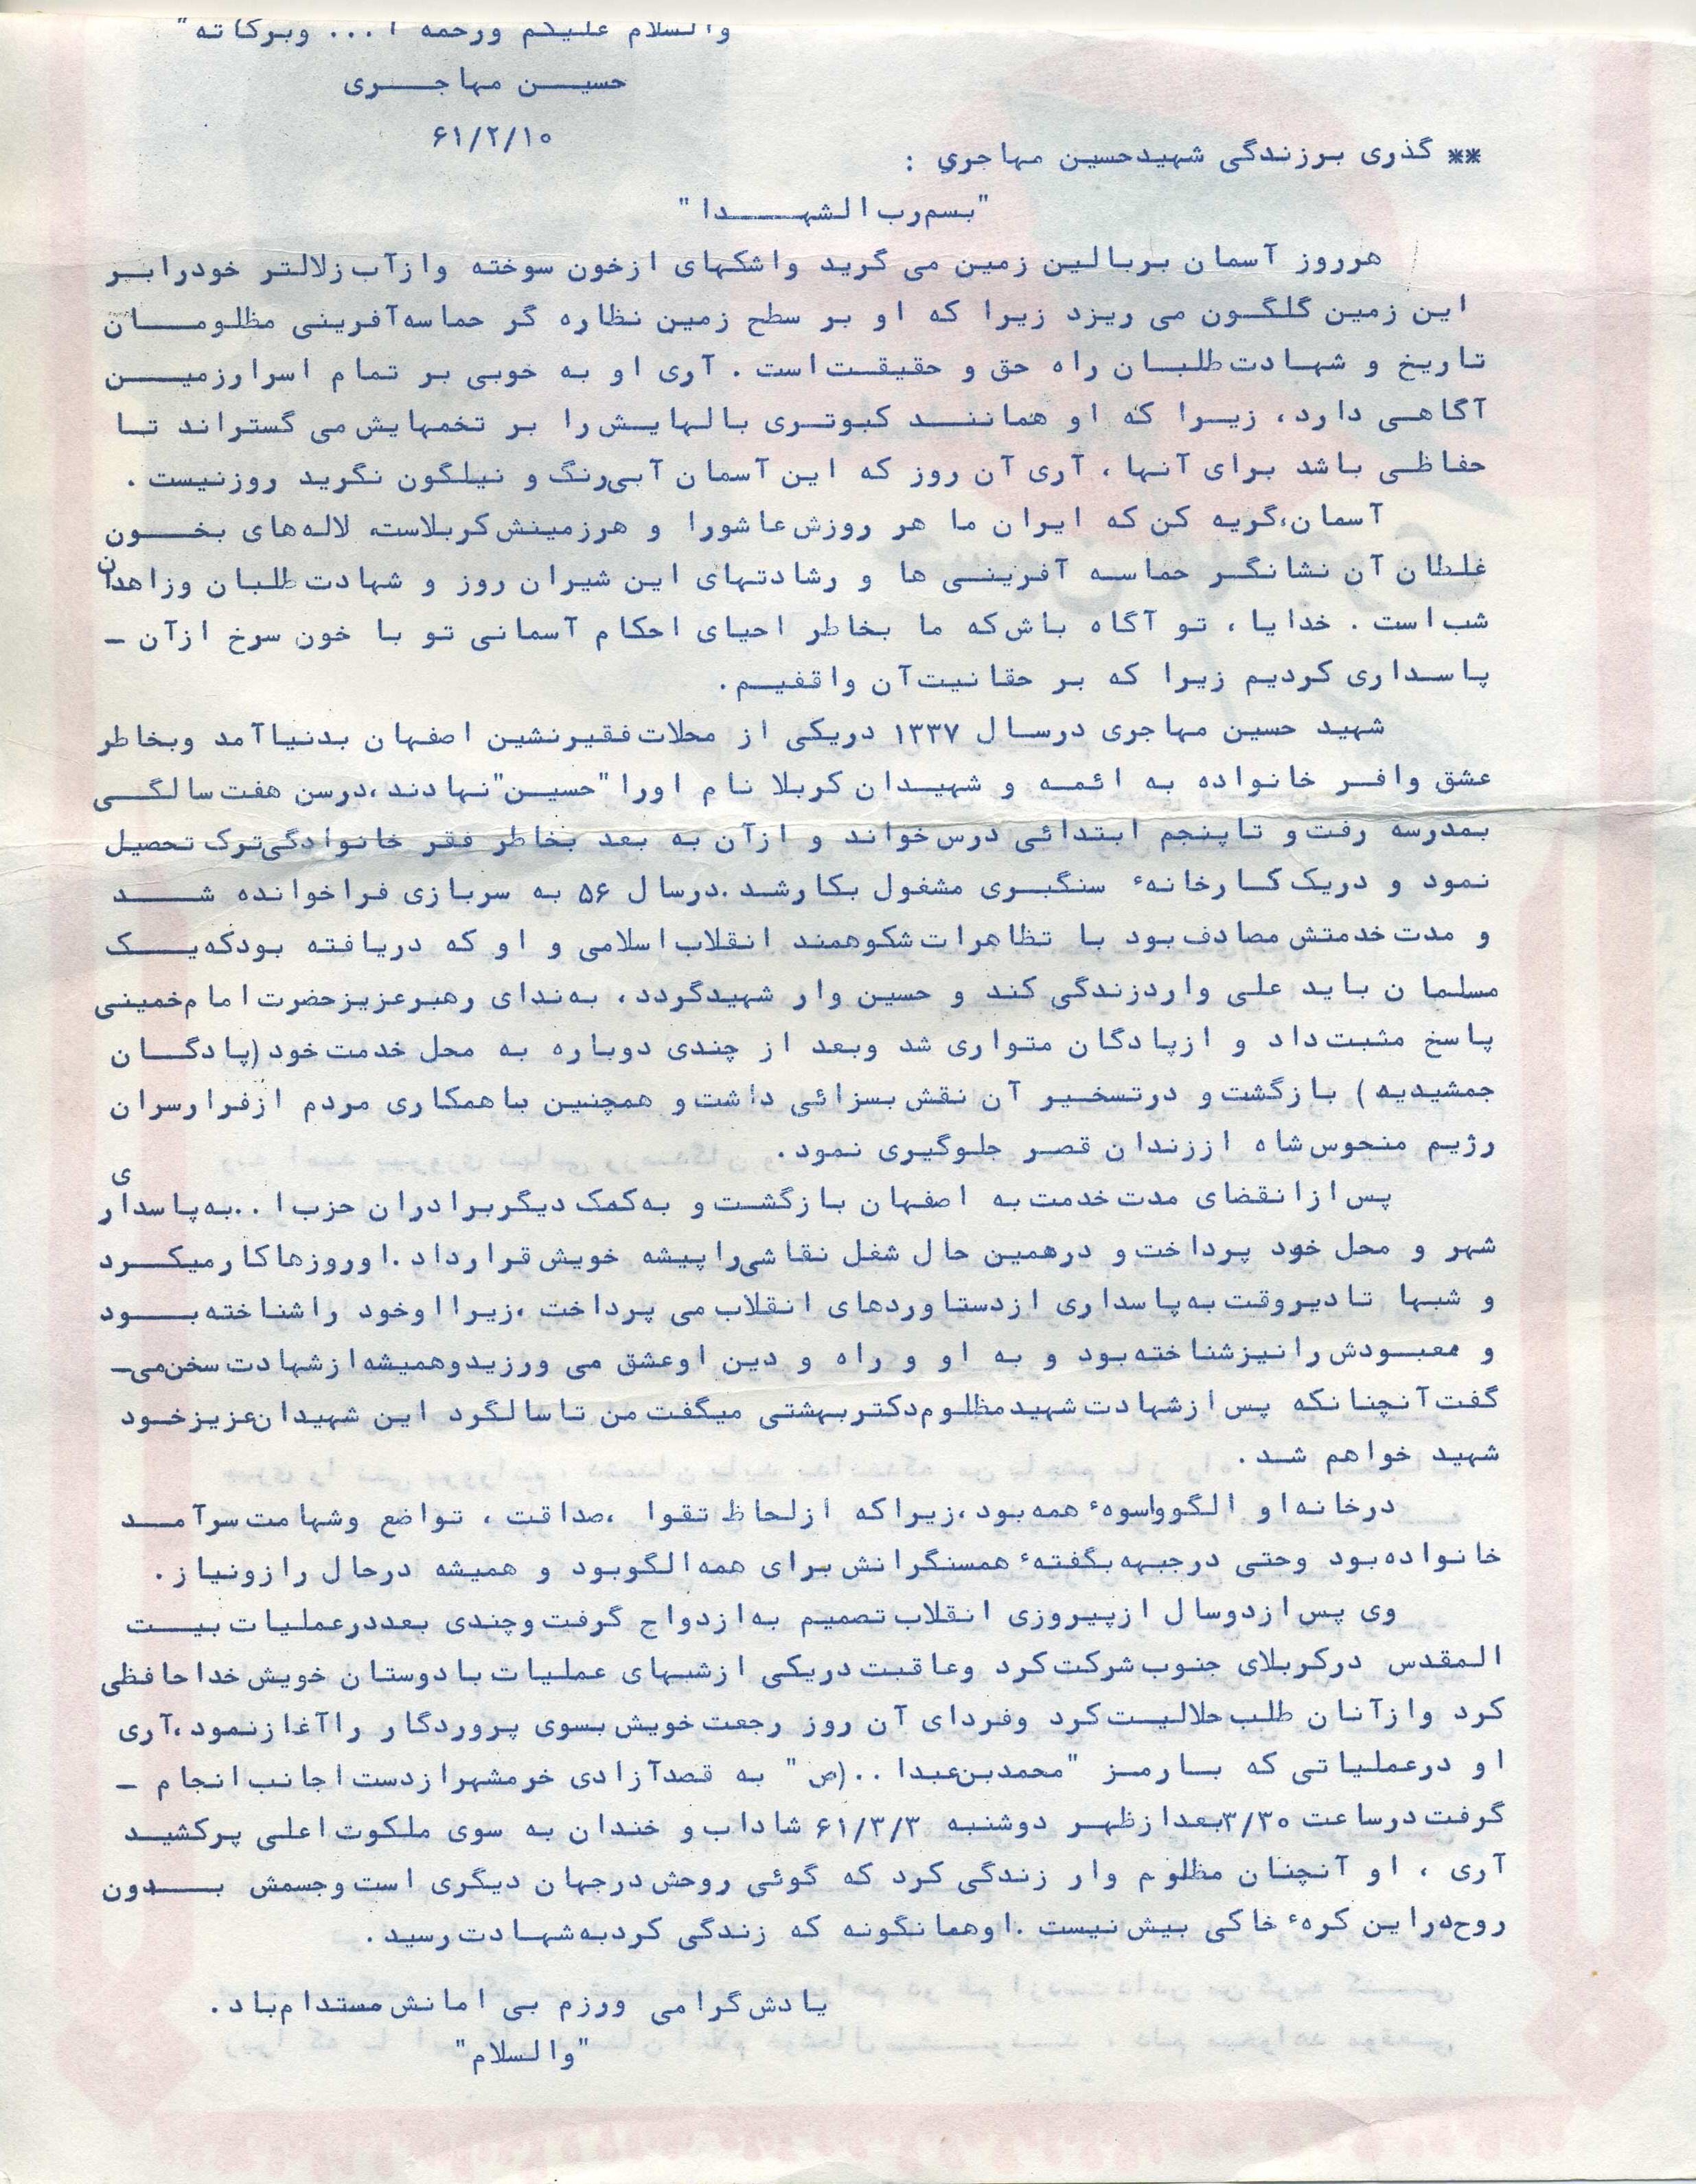 والسلام علیکم ورحمه ا ... وبرکاته"
حسین مهاجری
۶۱/۲/۱۰
** گذری برزندگی شهیدحسین مهاجری :
"بسم‌رب الشهدا"
هرروز آسمان بربالین زمین می گرید واشکهای ازخون سوخته وازآب زلالتر خودرابر
این زمین گلگون می ریزد زیرا که او بر سطح زمین نظاره گر حماسه‌آفرینی مظلومان
تاریخ و شهادت‌طلبان راه حق و حقیقت‌است . آری او به خوبی بر تمام اسرارزمین
آگاهی دارد، زیرا که او همانند کبوتری بالهایش‌را بر تخمهایش‌می گستراند تا
حفاظی باشد برای آنها ، آری آن روز که این آسمان آبی‌رنگ و نیلگون نگرید روزنیست .
آسمان،گریه کن که ایران ما هر روزش‌عاشورا و هرزمینش‌کربلاست، لاله‌های بخون
غلطان آن نشانگر حماسه آفرینی ها و رشادتهای این شیران روز و شهادت‌طلبان وزاهدان
شب‌است . خدایا ، تو آگاه باش‌که ما بخاطر احیای احکام آسمانی تو با خون سرخ ازآن –
پاسداری کردیم زیرا که بر حقانیت‌آن واقفیم.
شهید حسین مهاجری درسال ۱۳۳۷ دریکی از محلات‌فقیرنشین اصفهان بدنیاآمد وبخاطر
عشق وافر خانواده به ائمه و شهیدان کربلا نام اورا "حسین"نهادند ،درسن هفت‌سالگی
بمدرسه رفت‌و تاپنجم ابتدائی درس‌خواند و ازآن به بعد بخاطر فقر خانوادگی‌ترک تحصیل
نمود و دریک‌کارخانهء سنگبری مشغول بکارشد .درسال ۵۶ به سربازی فراخوانده شد
و مدت خدمتش مصادف‌بود با تظاهرات‌شکوهمند انقلاب‌اسلامی و او که دریافته بودکه‌یک
مسلمان باید علی واردزندگی کند و حسین وار شهیدگردد، به‌ندای رهبرعزیزحضرت‌امام‌خمینی
پاسخ مثبت‌داد و ازپادگان متواری شد وبعد از چندی دوباره به محل خدمت‌خود (پادگان
جمشیدیه ) بازگشت‌و درتسخیر آن نقش‌بسزائی داشت‌و همچنین باهمکاری مردم ازفرارسران
رژیم منحوس‌شاه اززندان قصر جلوگیری نمود.
پس‌ازانقضای مدت‌خدمت‌به اصفهان بازگشت‌و به‌کمک دیگربرادران حزب‌ا ..به‌پاسداری
شهر و محل خود پرداخت‌و درهمین حال شغل نقاشی‌راپیشه خویش‌قرارداد .اوروزهاکارمیکرد
و شبها تادیروقت‌به‌پاسداری ازدستاوردهای انقلاب‌می پرداخت ،زیرااوخود راشناخته‌بود
و معبودش‌رانیزشناخته‌بود و به او و راه و دین اوعشق می ورزیدوهمیشه‌ازشهادت‌سخن‌می–
گفت‌آنچنانکه پس‌ازشهادت‌شهیدمظلوم‌دکتربهشتی میگفت‌من تاسالگرد این شهیدان‌عزیزخود
شهید خواهم شد.
درخانه‌او الگوواسوهء همه‌بود،زیراکه ازلحاظ تقوا ،صداقت ، تواضع وشهامت‌سرآمد
خانواده‌بود وحتی درجبهه‌بگفتهء همسنگرانش‌برای همه‌الگوبود و همیشه درحال رازونیاز.
وی پس‌ازدوسال ازپیروزی انقلاب‌تصمیم به‌ازدواج گرفت‌وچندی بعددرعملیات‌بیت
المقدس درکربلای جنوب‌شرکت‌کرد وعاقبت‌دریکی ازشبهای عملیات‌بادوستان خویش‌خداحافظی
کرد وازآنان طلب‌حلالیت‌کرد وفردای آن روز رجعت‌خویش‌بسوی پروردگار راآغازنمود،آری
او درعملیاتی که بارمز "محمدبن‌عبدا ..(ص" به قصدآزادی خرمشهرازدست‌اجانب‌انجام –
گرفت‌درساعت ۳/۳۰بعدازظهر دوشنبه ۶۱/۳/۳ شاداب‌و خندان به سوی ملکوت‌اعلی پرکشید
آری ، او آنچنان مظلوم وار زندگی کرد که گوئی روحش‌درجهان دیگری است‌وجسمش بدون
روح‌دراین کرهء خاکی بیش‌نیست .اوهمانگونه که زندگی کردبه‌شهادت‌رسید.
یادش‌گرامی ورزم بی امانش‌مستدام‌باد.
"والسلام"